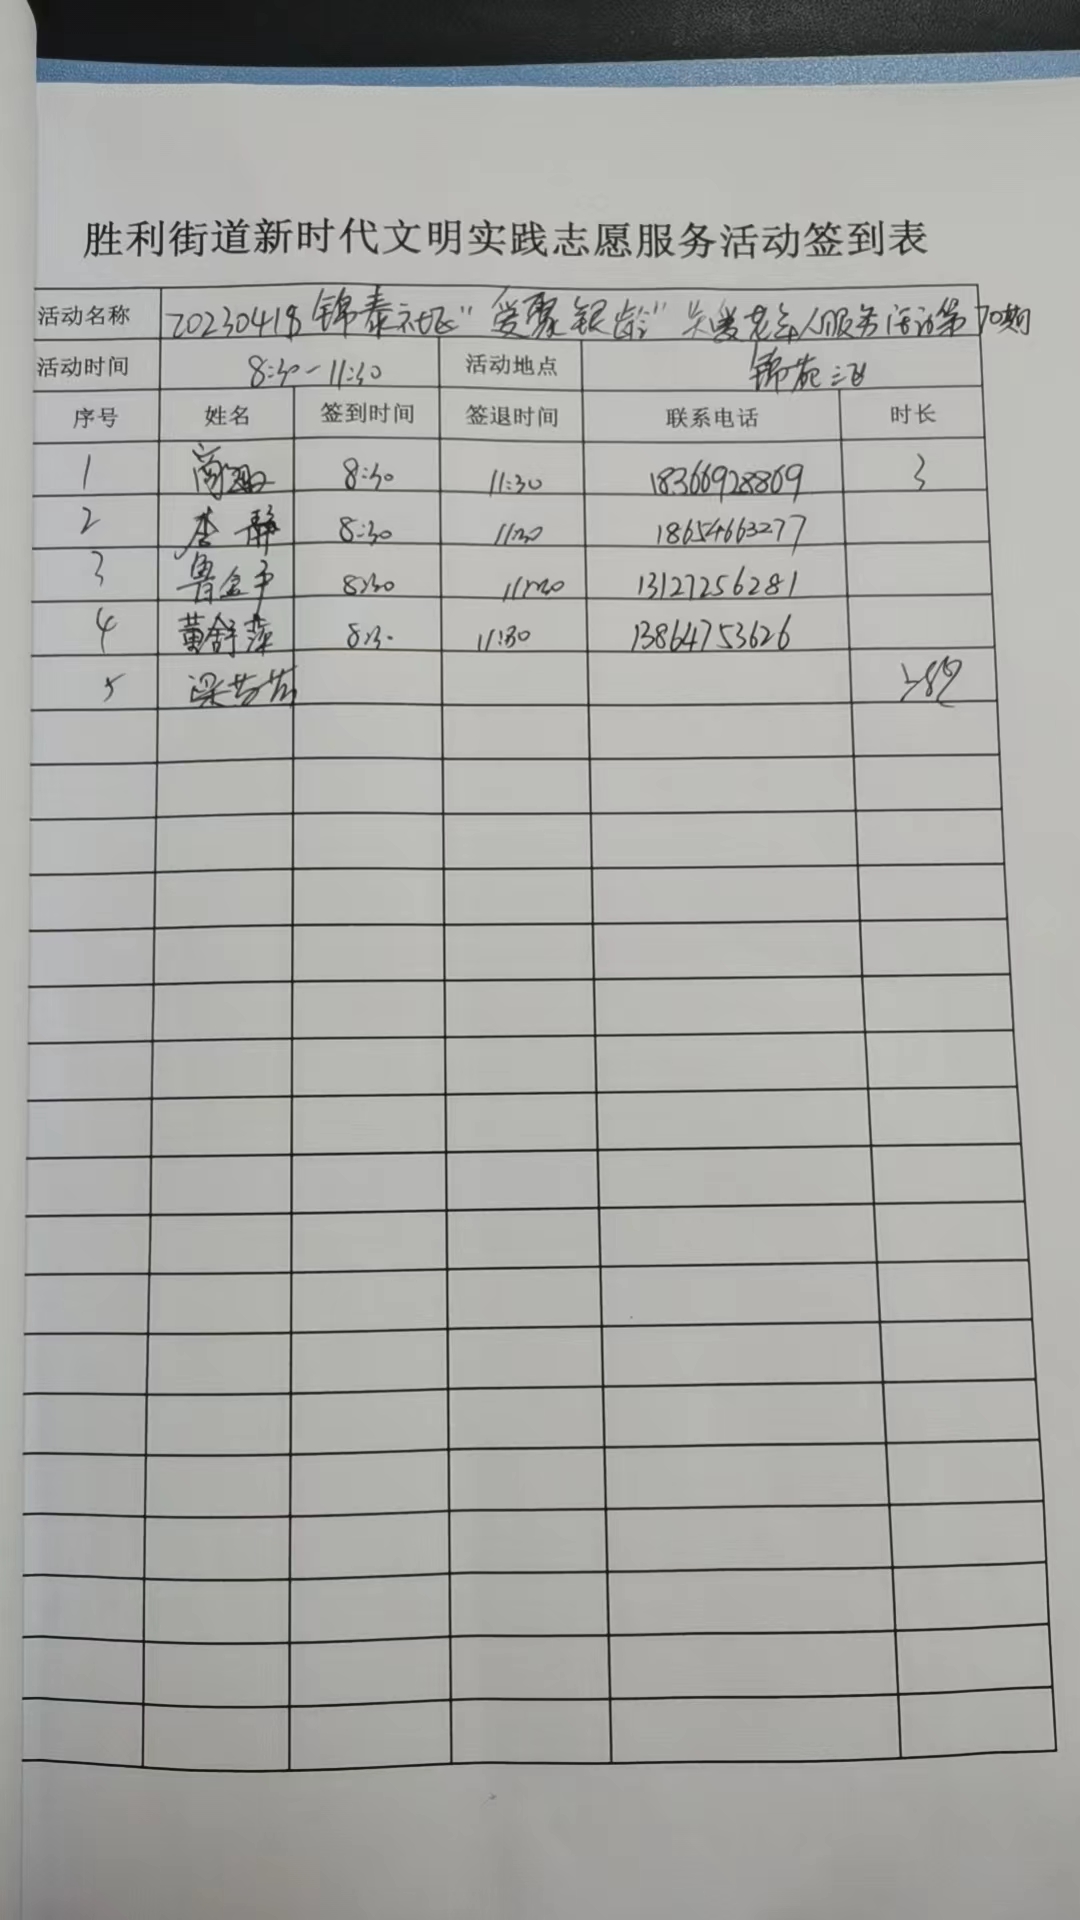 胜利街道新时代文明实践志愿服务活动签到表
活动名称 20230418锦泰社区"爱聚银龄"关爱老年人服务活动第70期
活动时间 8:30-11:30 活动地点 锦苑三区
序号 姓名 签到时间 签退时间 联系电话 时长
1 8:30 11:30 18366928869 3
2 李静 8:30 11:30 18654663277
3 鲁金平 8:30 11:30 13127256281
4 黄舒萍 8:30 11:30 13864753626
5 梁芳芳